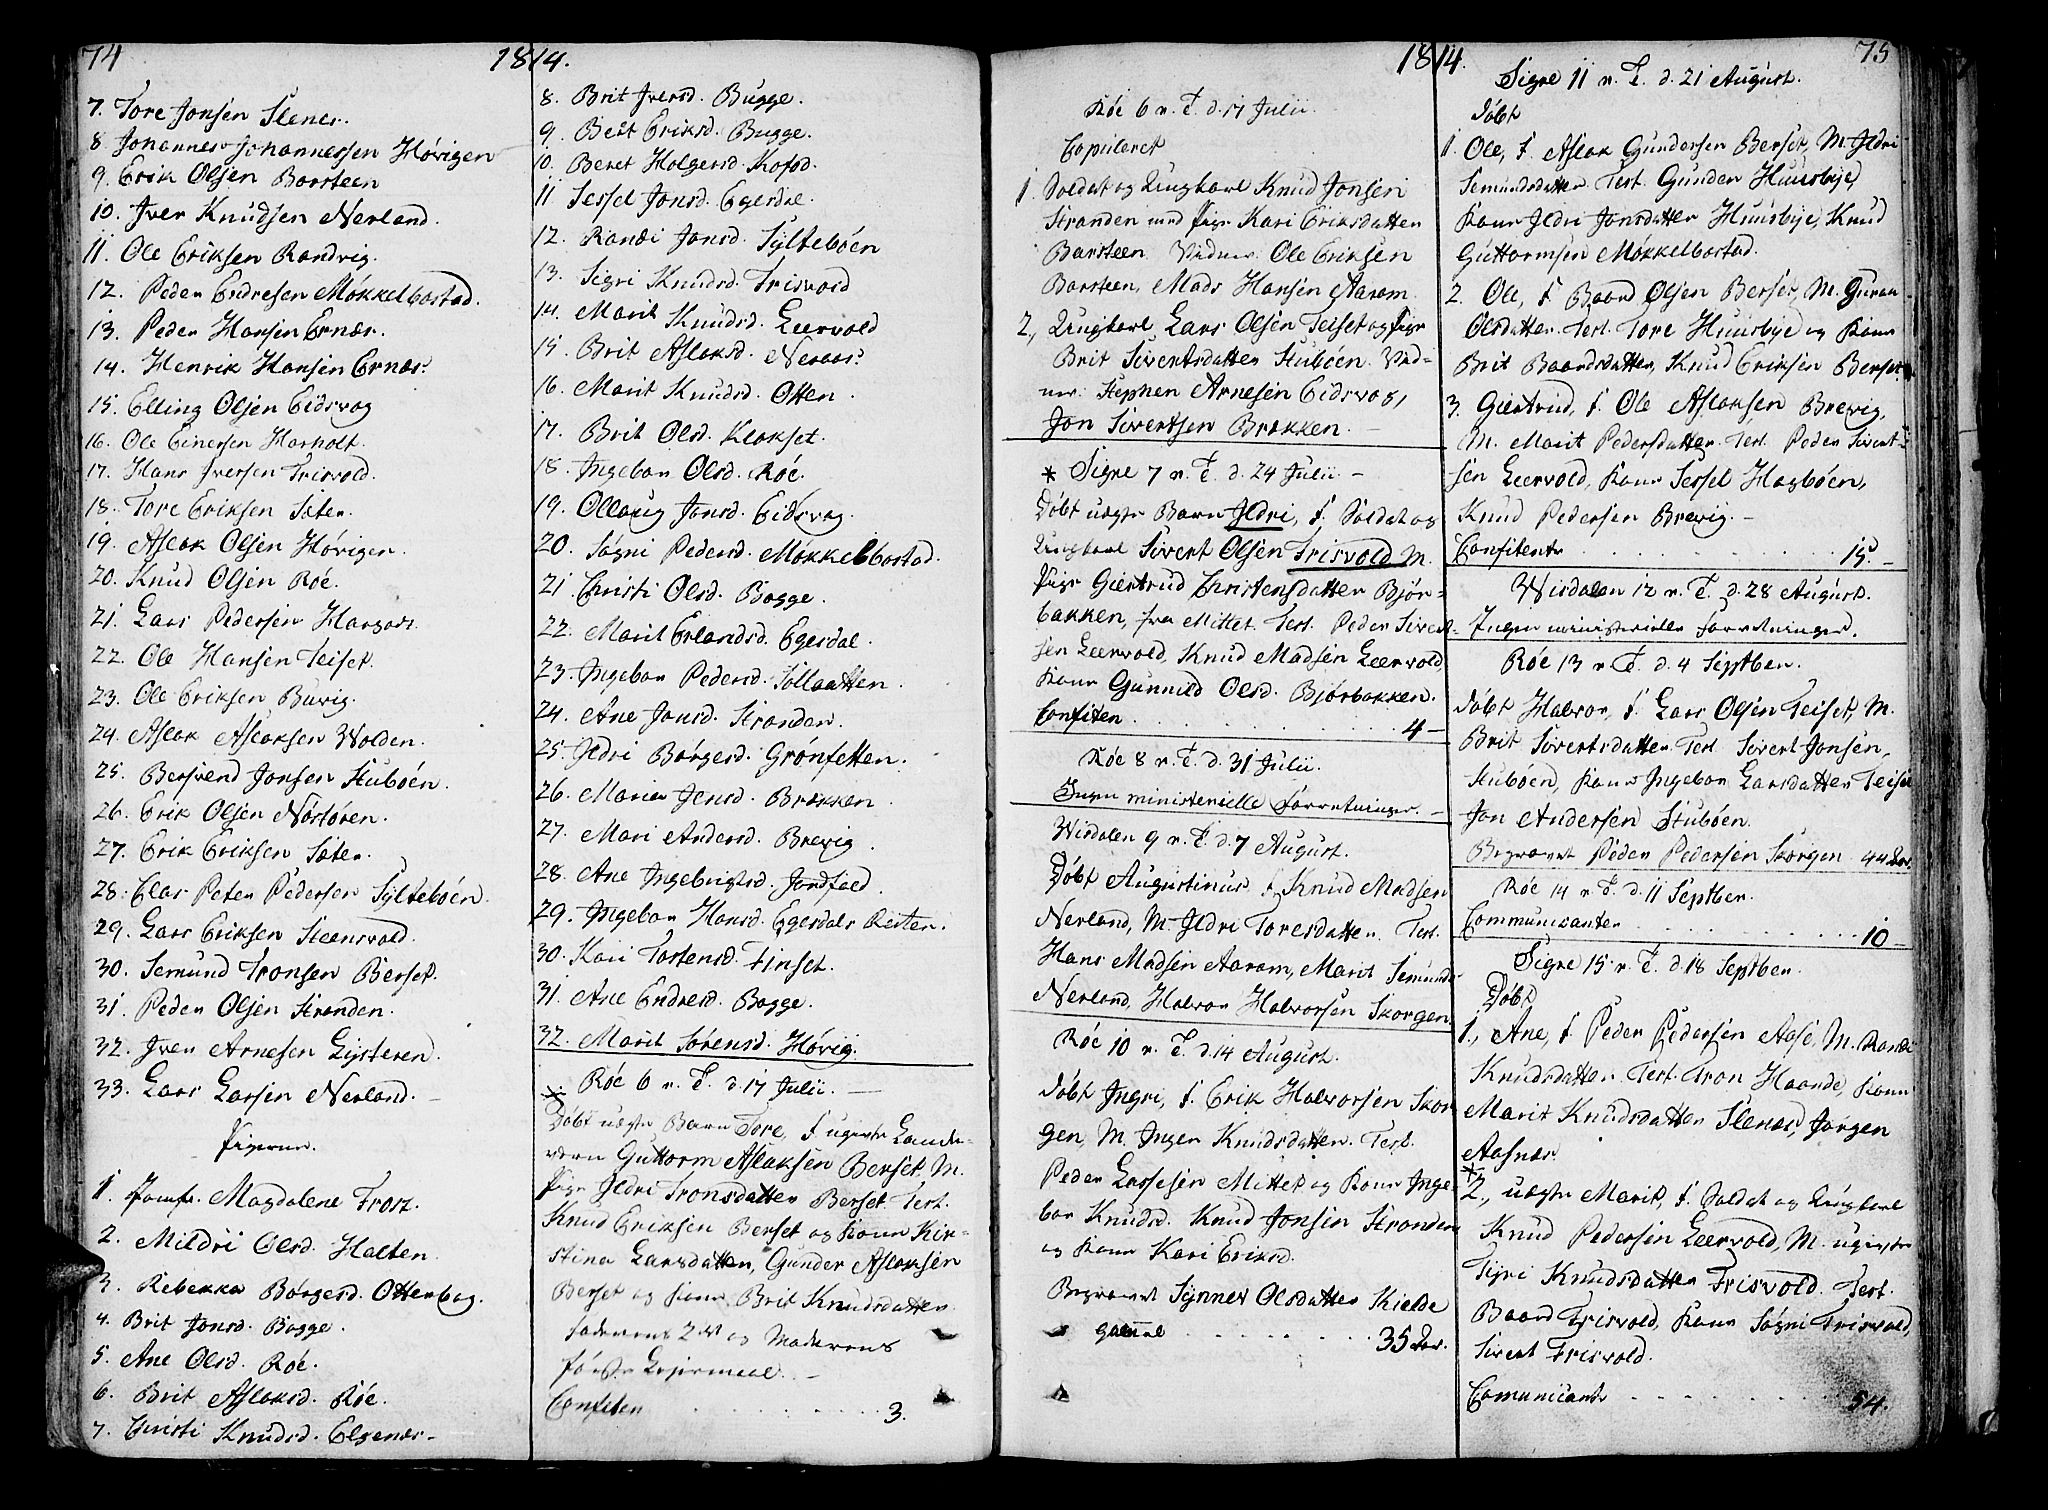 74
1814.
7. Tore Jonsen Slenes.
8 Johannes Johannessen Hövigen
9. Erik Olsen Barsteen
10. Iver Knudsen Nerland.
11. Ole Eriksen Randvig.
12. Peder Endresen Mökkelbostad.
13. Peder Hansen Ernæs.
14. Henrik Hansen Ernæs.
15. Elling Olsen Eidsvog
16. Ole Einersen Harholt.
17. Hans Iversen Frisvold.
18. Tore Eriksen Sæter.
19. Aslak Olsen Hövigen.
20. Knud Olsen Röe.
21. Lars Pedersen
22. Ole Hansen Teiset.
23. Ole Eriksen Buvig.
24. Aslak Aslaksen Wolden.
25. Bersvend Jonsen Stuböen.
26. Erik Olsen Nörstören.
27. Erik Eriksen Sæter.
28. Clas Peter Pedersen Sylteböen.
29. Lars Eriksen Steensvold.
30. Semund Tronsen Berset.
31. Peder Olsen Stranden.
32. Iver Arnesen Lysteren.
33. Lars Larsen Nerland.
Pigerne.
1. Jomfr. Magdalene Frost.
2. Mildri Olsd. Holten.
3. Rebekka Börgesd. Otterbog.
4. Brit Jonsd. Bogge.
5. Ane Olsd. Röe.
6. Brit Aslaksd. Röe.
7. Christi Knudsd. Elgenæs.
8. Brit Iversd. Bugge.
9. Brit Eriksd. Bugge.
10. Beret Holgersd. Kofod.
11 Sessel Jonsd. Egesdal.
12. Randi Jonsd. Sylteböen
13. Sigri Knudsd. Frisvold
14. Marit Knudsd. Leervold
15. Brit Aslaksd. Neraas.
16. Marit Knudsd. Otten.
17. Brit Olsd. Klokset.
18. Ingebor Olsd. Röe.
19. Ollaug Jonsd. Eidsvog.
20. Sögni Pedersd. Mökkelbostad.
21. Christi Olsd. Bogge.
22. Marit Erlandsd. Egesdal.
23. Ingebor Pedersd.
24. Ane Jonsd. Stranden.
25. Ildri Börgesd. Grönsetten.
26. Maria Jensd. Brækken.
27. Mari Andersd. Brevig.
28. Ane Ingebrigtsd. Jordfald.
29. Ingebor Hansd. Egesdals Reiten.
30. Kari Tostensd. Finset.
31. Ane Endresd. Bogge.
32. Marit Sörensd. Hövig.
Röe 6 n. T. d. 17 Julii.
* Döbt uægte Barn Tore, F. ugivte Lande-
værn Guttorm Aslaksen Berset, M.
Pige Ildri Tronsdatter Berset. Test.
Knud Eriksen Berset og Kone Kir-
stina Larsdatter, Gunder Aslaksen
Berset og Kone Brit Knudsdatter.
Faderens 2det og Moderens
förste Lejermaal.
Confiten . . . 3.
1814.
Röe 6 n. T. d. 17 Julii.
Copuleret
1. Soldat og Ungkarl Knud Jonsen
Stranden med Pige Kari Eriksdatter
Barsteen. Vidner. Ole Eriksen
Barsteen, Mads Hansen Aarom.
2, Ungkarl Lars Olsen Teiset og Pige
Brit Sivertsdatter Stuböen. Vid-
ner. Stephen Arnesen Eidsvog,
Jon Sivertsen Brækken.
* Sigre 7 n. T. d. 24 Julii
Döbt uægte Barn Ildri, F. Soldat og
Ungkarl Sivert Olsen Frisvold M.
Pige Giertrud Christensdatter Björ-
bakken, fra Mittet. Test. Peder Sivert-
sen Leervold, Knud Madsen Leervold,
Kone Gunnild Olsd. Björbakken.
Confiten . . . 4
Röe 8 n. T. d. 31 Julii.
Ingen ministerielle Forretninger.
Wisdalen 9 n. T. d. 7 August.
Döbt Augustinus F. Knud Madsen
Nerland, M. Ildri Toresdatter. Test.
Hans Madsen Aarom, Marit Semundsd
Nerland, Halvor Halvorsen Skorgen
Röe 10 n. T. d. 14 August.
Döbt Ingri, F. Erik Halvorsen Skor
gen, M. Inger Knudsdatter. Test.
Peder Lassesen Mittet og Kone Inge
bor Knudsd. Knud Jonsen Stranden
og Kone Kari Eriksd.
Begravet Synnev Olsdatter Kielde
gammel . . . 35 Aar.
75
Sigre 11 n. T. d. 21 August.
Döbt
1. Ole, F. Aslak Gundersen Berset, M. Ildri
Semundsdatter. Test. Gunder Huusbye,
Kone Ildri Jonsdatter Huusbye, Knud
Guttormsen Mökkelbostad.
2. Ole, F. Baard Olsen Berset, M. Guran
Olsdatter. Test. Tore Huusbye og Kone
Brit Baardsdatter, Knud Eriksen Berset.
3. Giertrud, F. Ole Aslaksen Brevig,
M. Marit Pedersdatter. Test. Peder Sivert-
sen Leervold, Kone Sessel Hagböen,
Knud Pedersen Brevig.
Confitents . . . 15.
Wisdalen 12 n. T. d. 28 August.
Ingen ministerielle Forretninger.
Röe 13 n. T. d. 4 Septber.
Döbt Halvor, F. Lars Olsen Teiset, M.
Brit Sivertsdatter. Test. Sivert Jonsen
Stuböen, Kone Ingebor Larsdatter Teiset
Jon Andersen Stuböen.
Begravet Peder Pedersen Skorgen 44 Aar.
Röe 14 n. T. d. 11 Septber.
Communicanter . . . 10
Sigre 15 n. T. d. 18 Septber.
Döbt
1., Ane, F. Peder Pedersen Aase, M. Randi
Knudsdatter. Test. Tron Haande, Kone
Marit Knudsdatter Slenes, Jörgen
Aasnæs.
* 2., uægte Marit, F. Soldat og Ungkarl
Knud Pedersen Leervold, M. ugivte
Sigri Knudsdatter Frisvold. Test.
Baard Frisvold, Kone Sögni Frisvold,
Sivert Frisvold.
Comunicants . . . 54.